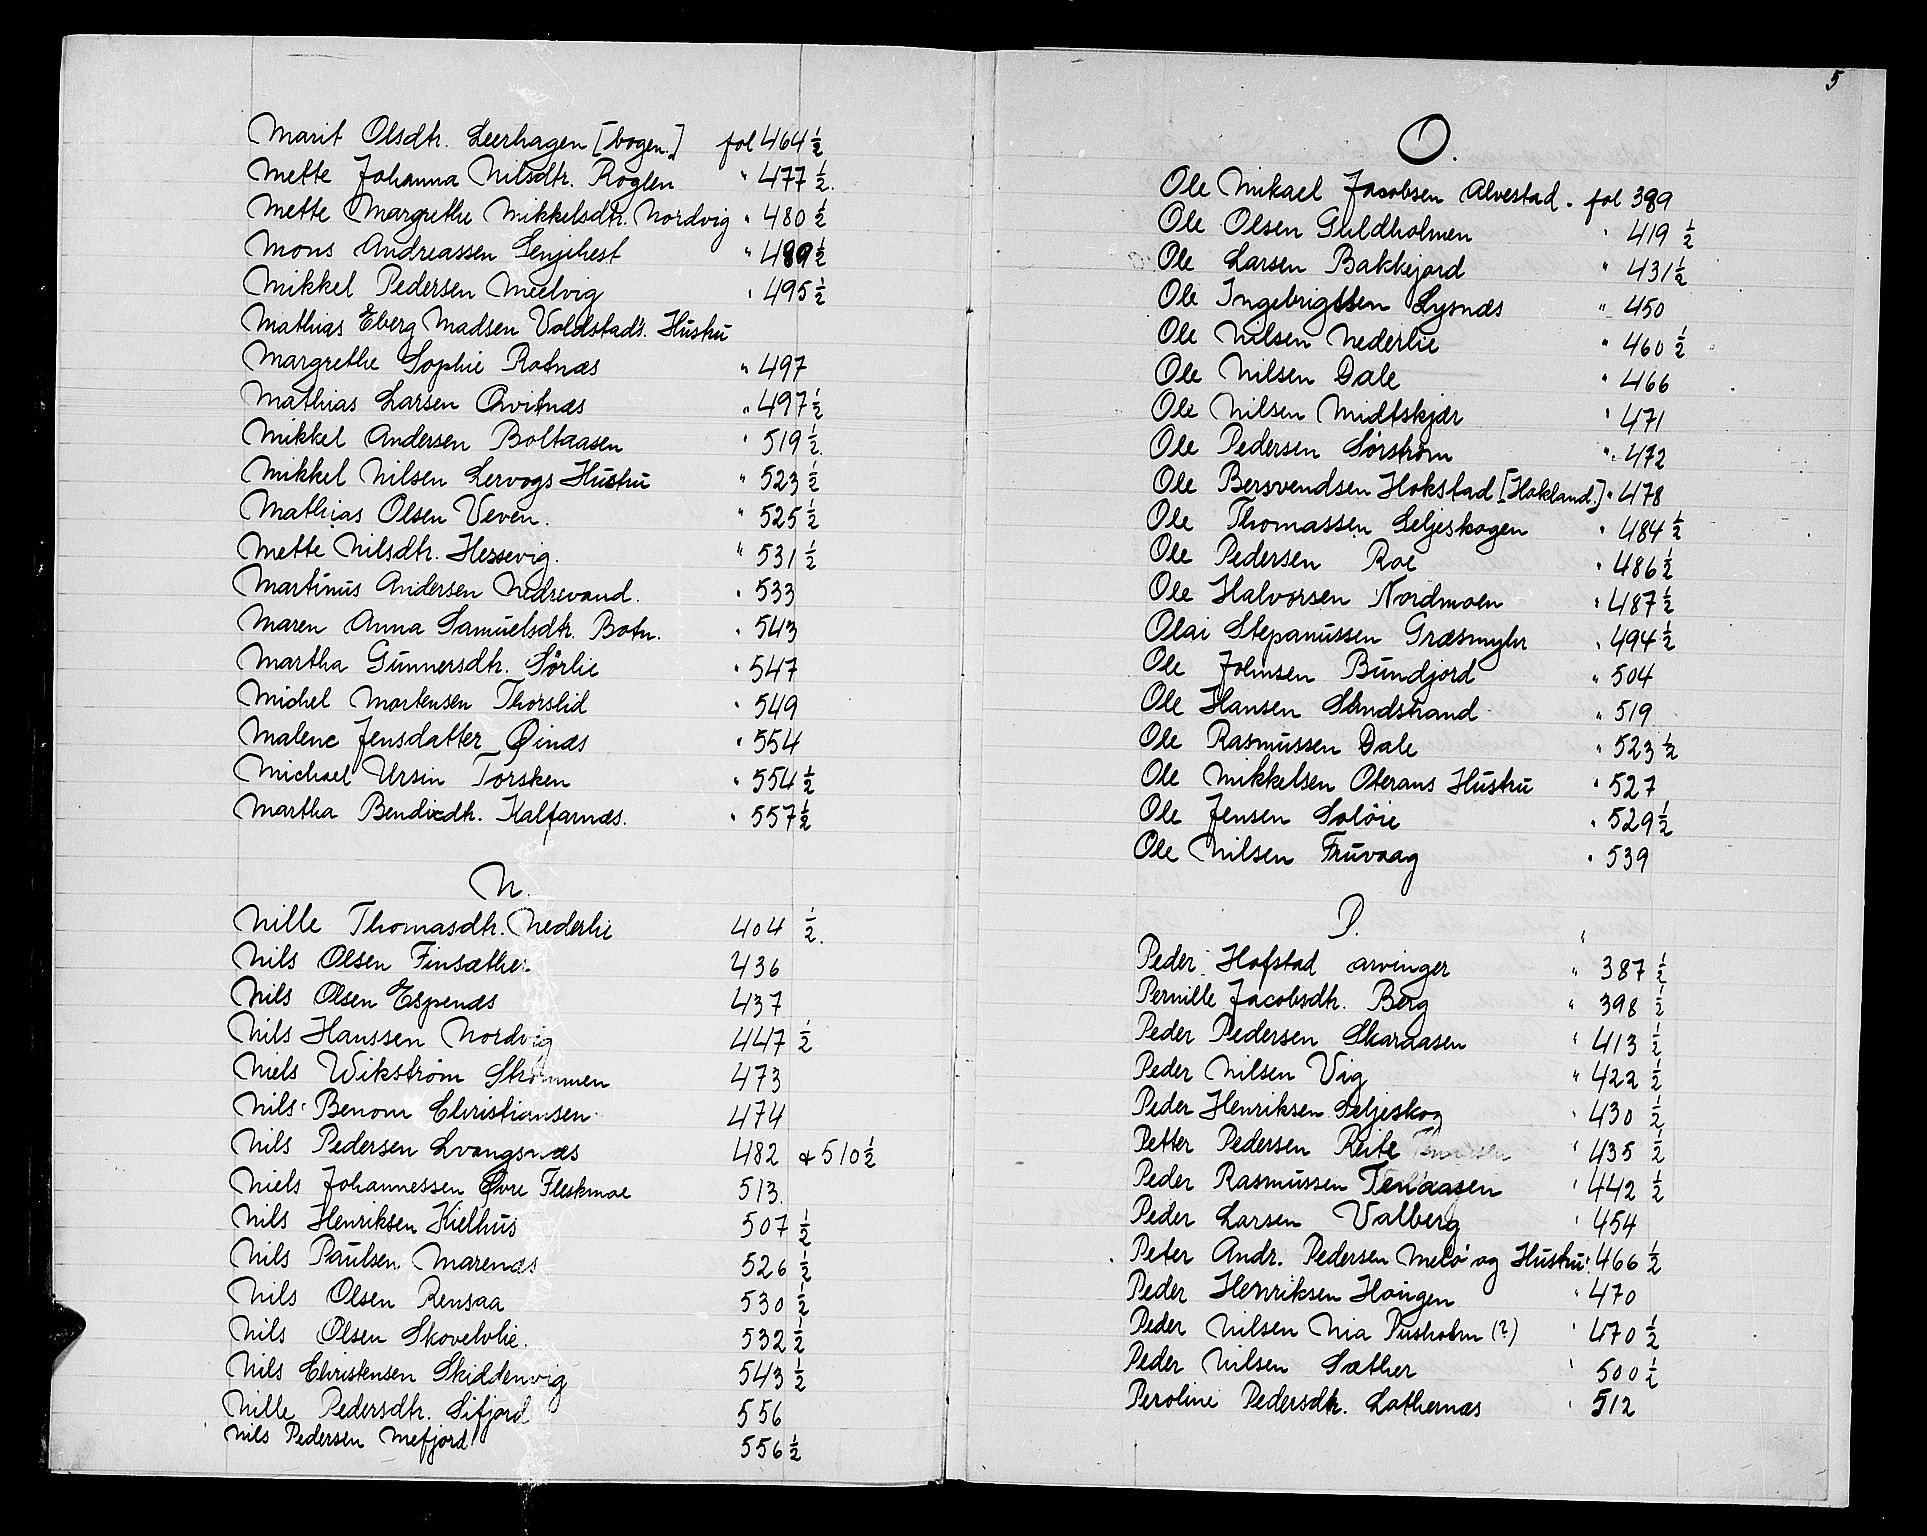 Marit Olsdtr. Leerhagen [bogen.] fol 464 ½
Mette Johanna Nilsdtr. Roglen " 477 ½.
Mette Margrethe Mikkelsdtr. Nordvig " 480 ½
Mons Andreassen Senjehest " 489 ½
Mikkel Pedersen Meelvig " 495 ½
Mathias Eberg Madsen Voldstads. Hustru
Margrethe Sophie Rotnæs " 497
Mathias Larsen Qvitnæs " 497 ½
Mikkel Andersen Boltaasen " 519 ½.
Mikkel Nilsen Lervogs Hustru " 523 ½
Mathias Olsen Veven. " 525 ½
Mette Nilsdtr. Hessevig. " 531 ½
Martinus Andersen Nedrevand. " 533
Maren Anna Samuelsdtr. Botn. " 543
Martha Gunnersdtr. Sörlie " 547
Michel Mortensen Thorslid " 549
Malene Jensdatter Øinæs " 554
Michael Ursin Torsken " 554 ½
Martha Bendixdtr. Kalfarnæs. " 557 ½
N.
Nille Thomasdtr. Nederlie 404 ½.
Nils Olsen Finsæther 436
Nils Olsen Espenæs 437
Nils Hanssen Nordvig 447 ½
Niels Wikström Skömmen 473
Nils Benom Christiansen 474
Nils Pedersen Lvangsnæs 482 & 510 ½
Niels Johannessen Øvre Fleskmoe 513.
Nils Henriksen Kielhus 507 ½
Nils Paulsen Marenæs 526 ½
Nils Olsen Rensaa 530 ½
Nils Olsen Skovelvlie. 532 ½
Nils Christensen Skiddenvig 543 ½
Nille Pedersdtr. Sifjord 556
Nils Pedersen Mefjord 556 ½
5
O.
Ole Mikael Jacobsen Alvestad. fol 389
Ole Olsen Guldholmen " 419 ½
Ole Larsen Bakkejord " 431 ½
Ole Ingebrigtsen Lysnæs " 450
Ole Nilsen Nederlie " 460 ½
Ole Nilsen Dale " 466
Ole Nilsen Midtskjær " 471
Ole Pedersen Sörström " 472
Ole Bersvendsen Hokstad [Hakland.] " 478
Ole Thomassen Seljeskogen " 484 ½
Ole Pedersen Roe " 486 ½
Ole Halvorsen Nordmoen " 487 ½
Olai Stepanussen Græsmyhr " 494 ½
Ole Johnsen Bundjord " 504
Ole Hansen Sandstrand " 519
Ole Rasmussen Dale " 523 ½
Ole Mikkelsen Oterans Hustru " 527
Ole Jensen Solöie " 529 ½
Ole Nilsen Fruvaag " 539
P.
Peder Hofstad arvinger " 387 ½
Pernille Jacobsdtr. Berg " 398 ½
Peder Pedersen Skaraasen " 413 ½
Peder Nilsen Vig " 422 ½
Peder Henriksen Seljeskog " 430 ½
Petter Pedersen Reite " 435 ½
Peder Rasmussen Tenaasen " 442 ½
Peder Larsen Valberg " 454
Peter Andr. Pedersen Melö og Hustru " 466 ½
Peder Henriksen Haugen " 470
Peder Nilsen Nia Pusholm (?) " 470 ½
Peder Nilsen Sæther " 500 ½
Peroline Pedersdtr. Lathernæs " 512